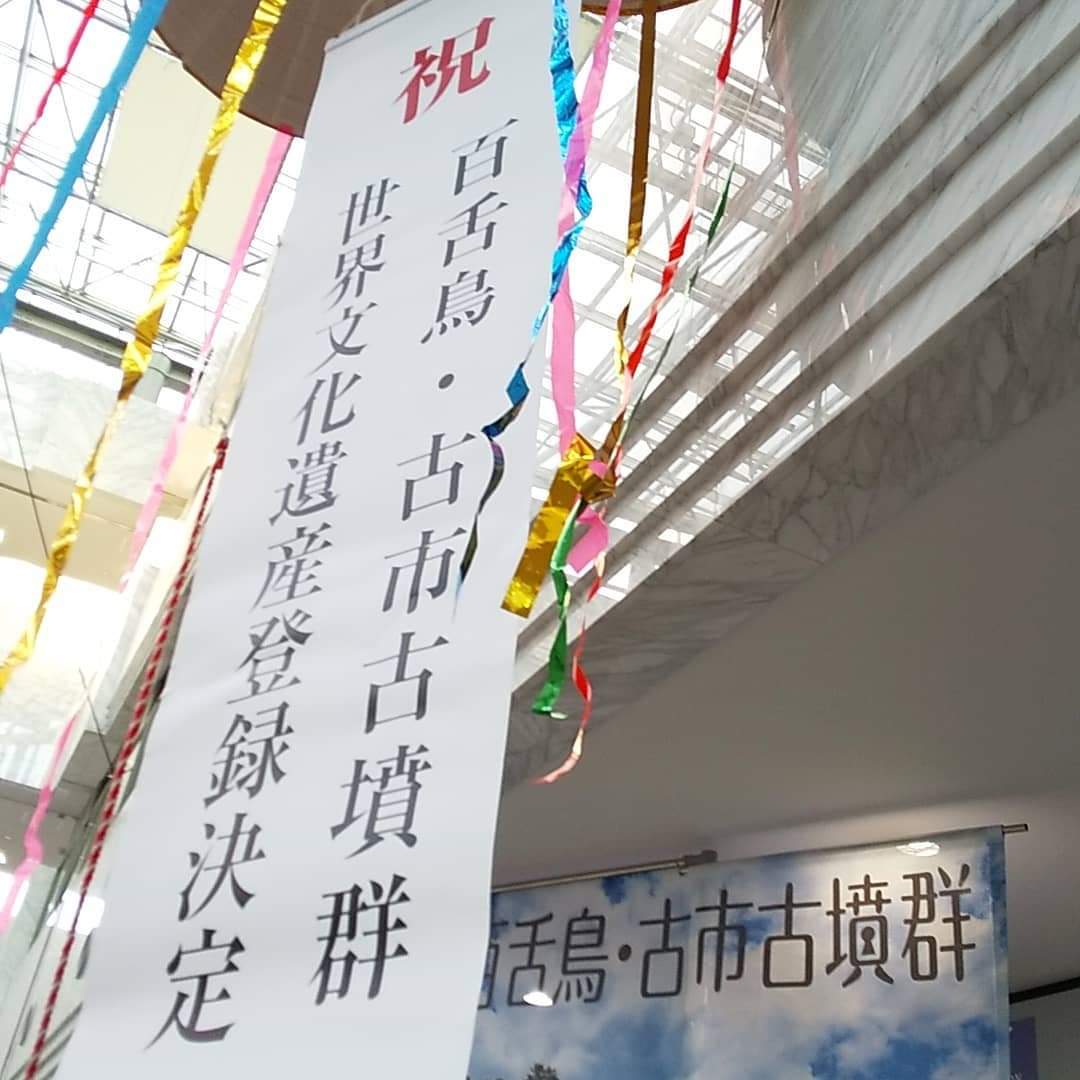 祝
百舌鳥・古市古墳群
世界文化遺産登録決定
百舌鳥・古市古墳群